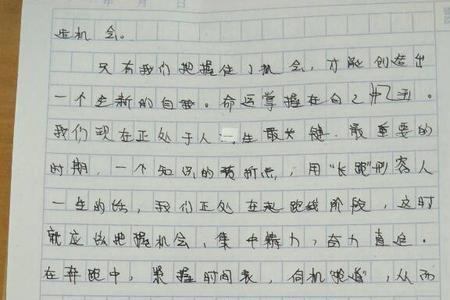 年 月 日
生机会。
只有我们把握住了机会，才能创造出
一个全新的自我。命运掌握在自己手里。
我们现在正处于人一生最关键、最重要的
时期，一个知识的转折点；用“长跑”形容人
一生的话，我们正处在起跑线阶段，这时
就应该把握机会，集中精力，奋力直追。
在奔跑中，掌握时间表，伺机“跑道”，从而